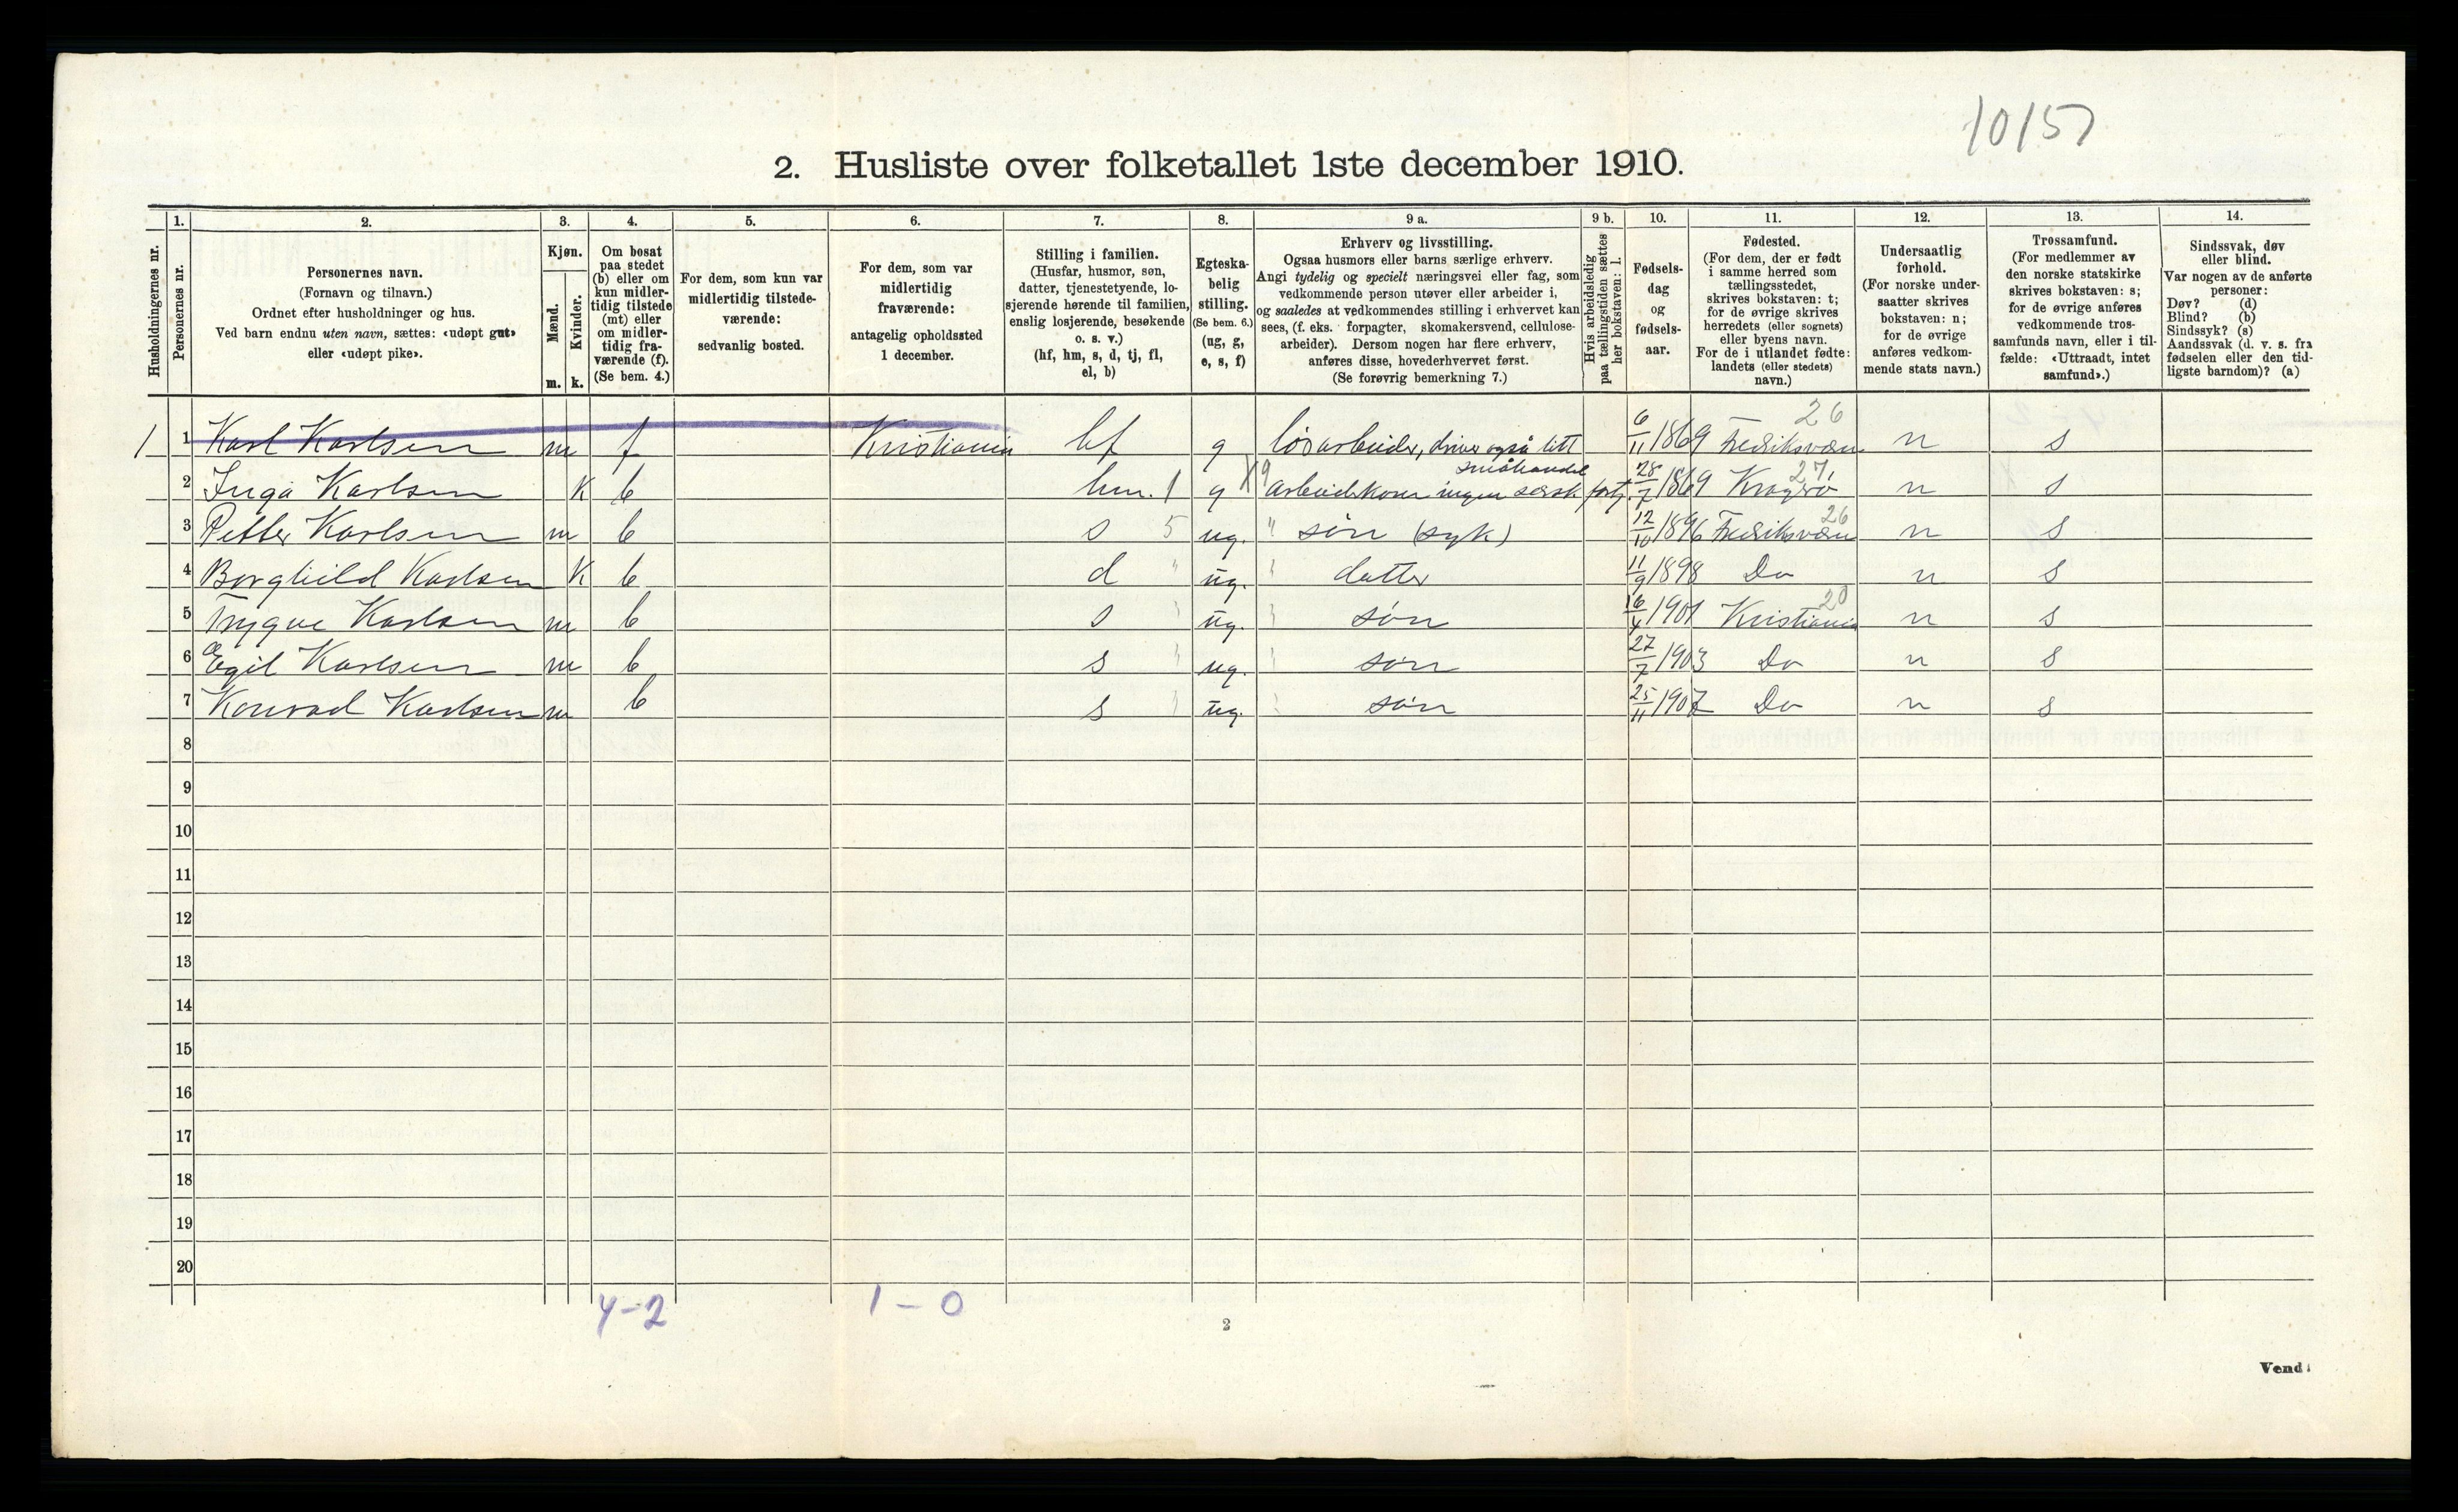 10157
2. Husliste over folketallet 1ste december 1910.
Husholdningernes nr.
1. Personernes nr.
2. Personernes navn.
(Fornavn og tilnavn.)
Ordnet efter husholdninger og hus.
Ved barn endnu uten navn, sættes: «udøpt gut»
eller «udøpt pike».
3. Kjøn.
Mænd. m.
Kvinder. k.
4. Om bosat
paa stedet
(b) eller om
kun midler-
tidig tilstede
(mt) eller
om midler-
tidig fra-
værende (f).
(Se bem. 4.)
5. For dem, som kun var
midlertidig tilstede-
værende:
sedvanlig bosted.
6. For dem, som var
midlertidig
fraværende:
antagelig opholdssted
1 december.
7. Stilling i familien.
(Husfar, husmor, søn,
datter, tjenestetyende, lo-
sjerende hørende til familien,
enslig losjerende, besøkende
o. s. v.)
(hf, hm, s, d, tj, fl,
el, b)
8. Egteska-
belig
stilling.
(Se bem. 6.)
(ug, g,
e, s, f)
9 a. Erhverv og livsstilling.
Ogsaa husmors eller barns særlige erhverv.
Angi tydelig og specielt næringsvei eller fag, som
vedkommende person utøver eller arbeider i,
og saaledes at vedkommendes stilling i erhvervet kan
sees, (f. eks. forpagter, skomakersvend, cellulose-
arbeider). Dersom nogen har flere erhverv,
anføres disse, hovederhvervet først.
(Se forøvrig bemerkning 7.)
9 b. Hvis arbeidsledig
paa tællingstiden sættes
her bokstaven: l.
10. Fødsels-
dag
og
fødsels-
aar.
11. Fødested.
(For dem, der er født
i samme herred som
tællingsstedet,
skrives bokstaven: t;
for de øvrige skrives
herredets (eller sognets)
eller byens navn.
For de i utlandet fødte:
landets (eller stedets)
navn.)
12. Undersaatlig
forhold.
(For norske under-
saatter skrives
bokstaven: n;
for de øvrige
anføres vedkom-
mende stats navn.)
13. Trossamfund.
(For medlemmer av
den norske statskirke
skrives bokstaven: s;
for de øvrige anføres
vedkommende tros-
samfunds navn, eller i til-
fælde: «Uttraadt, intet
samfund».)
14. Sindssvak, døv
eller blind.
Var nogen av de anførte
personer:
Døv? (d)
Blind? (b)
Sindssyk? (s)
Aandssvak (d. v. s. fra
fødselen eller den tid-
ligste barndom)? (a)
1 1 Karl Karlsen m f Kristiania hf g løsarbeider, driver også litt småhandel 6/11 1869 Fredriksværn 26 n s
2 Inga Karlsen K b hm. 1 g arbeiderkone ingen særsk. fortj. 28/7 1869 Kragerø 27 n s
3 Petter Karlsen m b s 5 ug. " søn (syk) 12/10 1896 Fredriksværn 26 n s
4 Borghild Karlsen K b d " ug. " datter 11/9 1898 Do n s
5 Trygve Karlsen m b s " ug. " søn 16/4 1901 Kristiania 20 n s
6 Egil Karlsen m b s " ug. " søn 27/7 1903 Do n s
7 Konrad Karlsen m b s " ug. " søn 25/11 1907 Do n s
8
9
10
11
12
13
14
15
16
17
18
19
20
4-2 1-0
2
Vend!